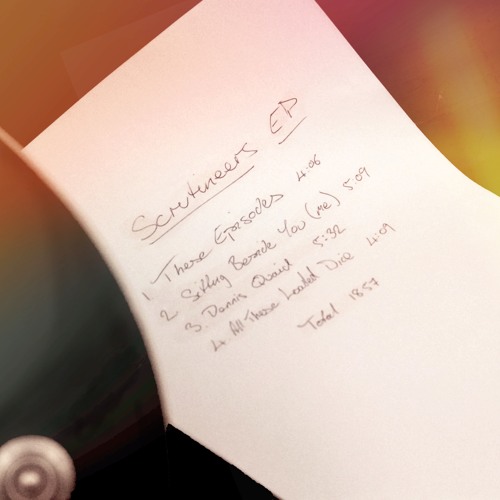 Scrutineers EP
1. These Episodes 4:06
2 Sitting Beside You (me) 5:09
3. Dennis Quaid 5:32
4. All These Loaded Dice 4:09
Total 18:57